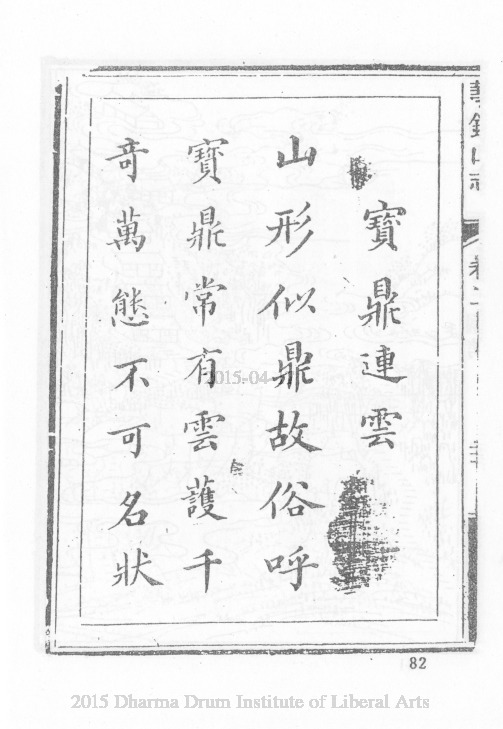 寶鼎連雲
山形似鼎故俗呼
寶鼎常有雲護千
奇萬態不可名狀
82
2015-04-
2015 Dharma Drum Institute of Liberal Arts